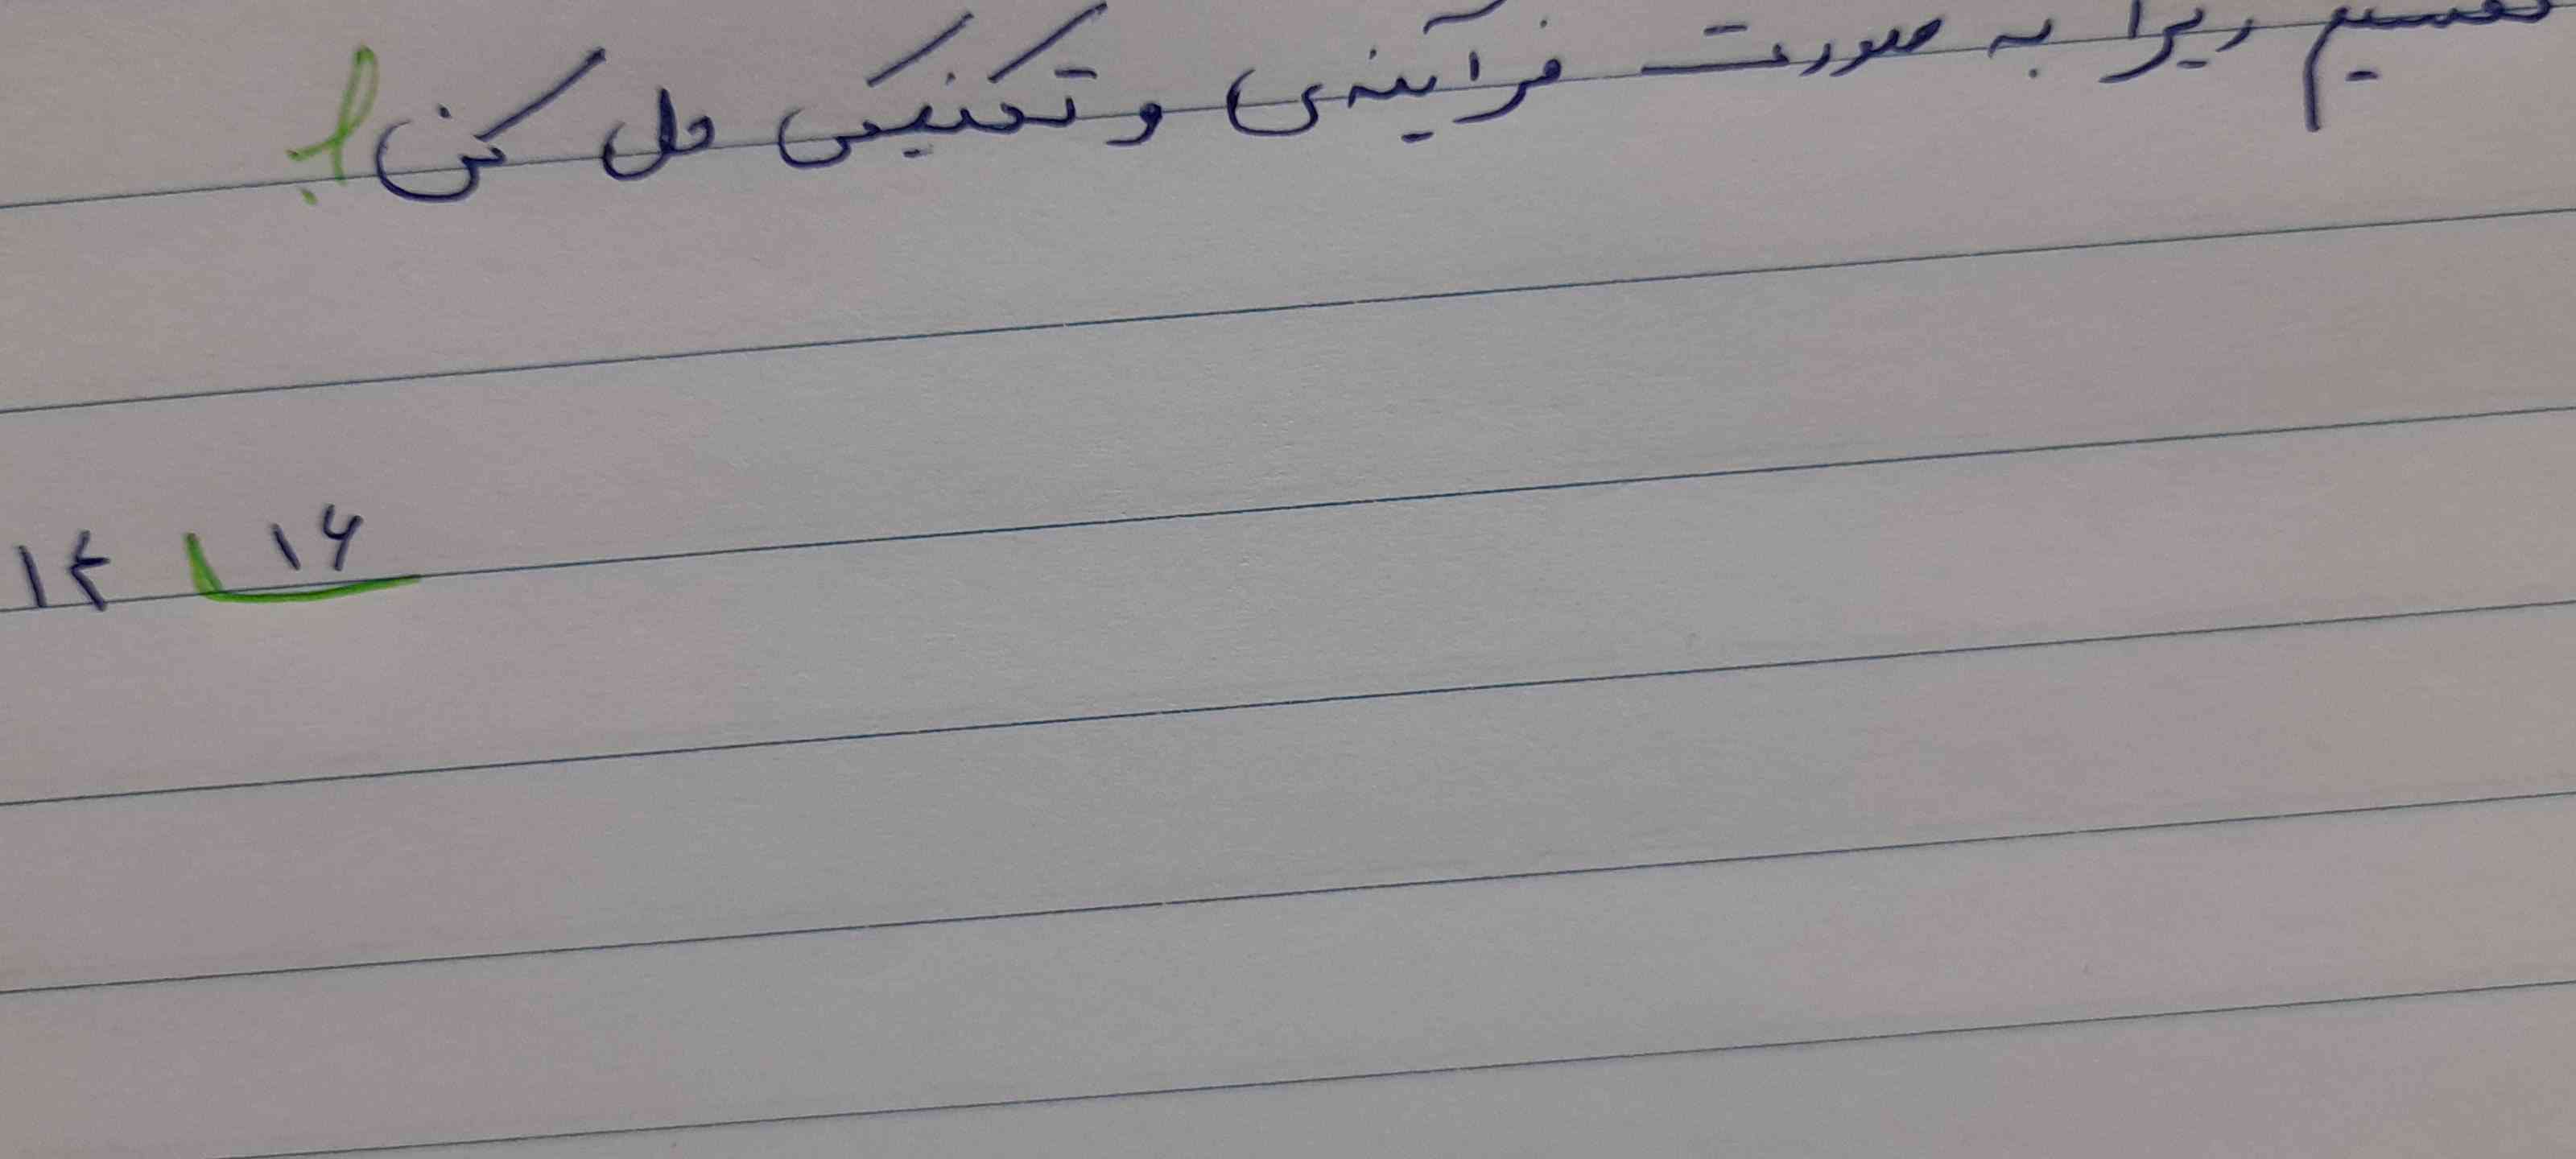 تقسیم زیرا به صورت فرآیندی و تکنیکی حل کن!
۱۴ ۱۶